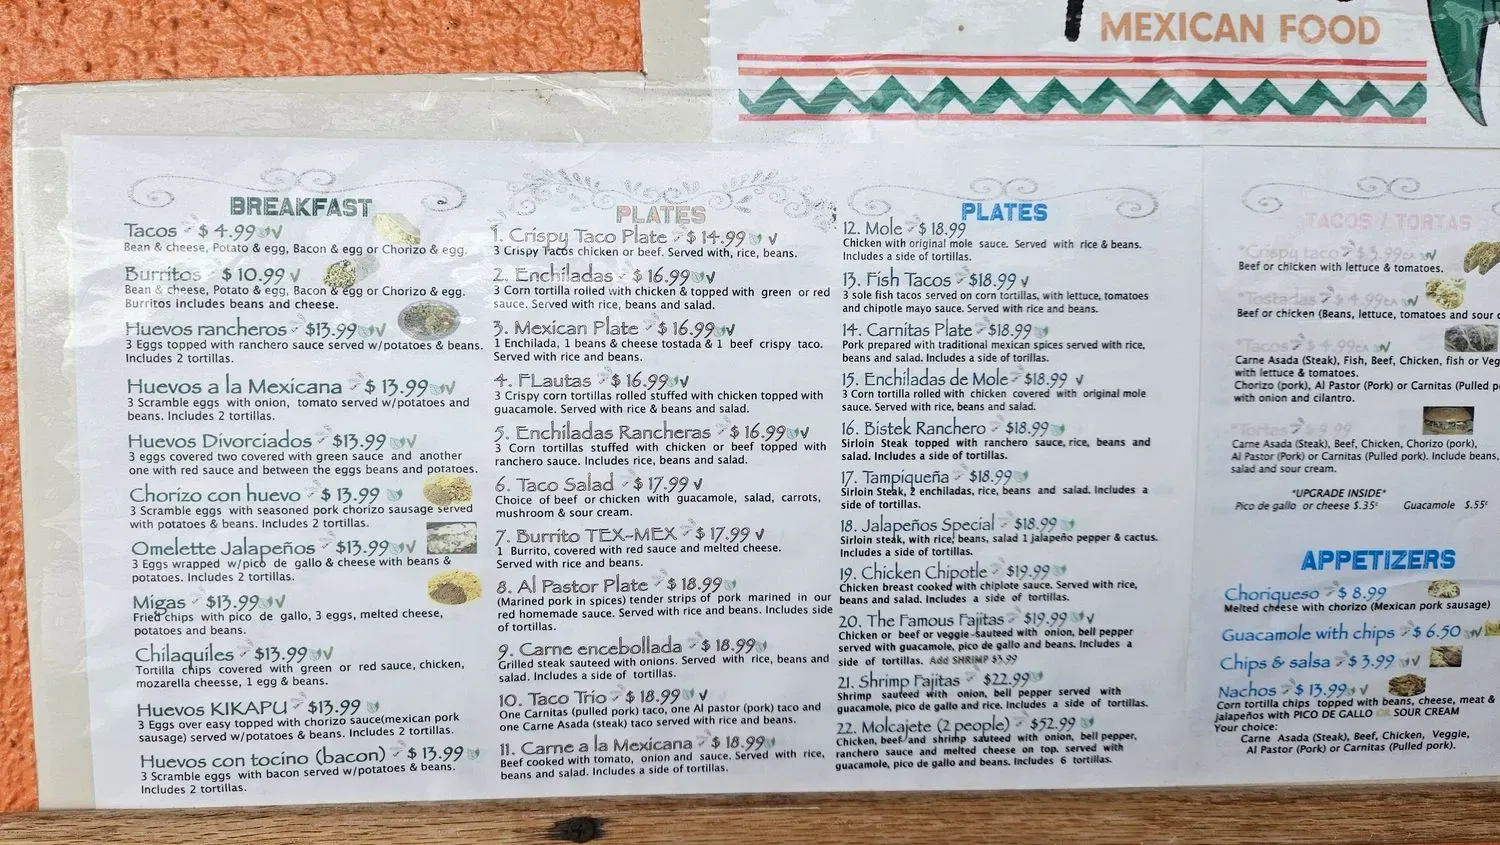 MEXICAN FOOD
BREAKFAST
Tacos $ 4.99 V
Bean & cheese, Potato & egg, Bacon & egg or Chorizo & egg.
Burritos $ 10.99 V
Bean & cheese, Potato & egg, Bacon & egg or Chorizo & egg.
Burritos includes beans and cheese.
Huevos rancheros $13.99 V
3 Eggs topped with ranchero sauce served w/potatoes & beans.
Includes 2 tortillas.
Huevos a la Mexicana $ 13.99 V
3 Scramble eggs with onion, tomato served w/potatoes and
beans. Includes 2 tortillas.
Huevos Divorciados $13.99 V
3 eggs covered two covered with green sauce and another
one with red sauce and between the eggs beans and potatoes.
Chorizo con huevo $ 13.99
3 Scramble eggs with seasoned pork chorizo sausage served
with potatoes & beans. Includes 2 tortillas.
Omelette Jalapeños $13.99 V
3 Eggs wrapped w/pico de gallo & cheese with beans &
potatoes. Includes 2 tortillas.
Migas $13.99 V
Fried chips with pico de gallo, 3 eggs, melted cheese,
potatoes and beans.
Chilaquiles $13.99 V
Tortilla chips covered with green or red sauce, chicken,
mozarella cheesse, 1 egg & beans.
Huevos KIKAPU $13.99
3 Eggs over easy topped with chorizo sauce(mexican pork
sausage) served w/potatoes & beans. Includes 2 tortillas.
Huevos con tocino (bacon) $ 13.99
3 Scramble eggs with bacon served w/potatoes & beans.
Includes 2 tortillas.
PLATES
1. Crispy Taco Plate $ 14.99 V
3 Crispy Tacos chicken or beef. Served with, rice, beans.
2. Enchiladas $ 16.99 V
3 Corn tortilla rolled with chicken & topped with green or red
sauce. Served with rice, beans and salad.
3. Mexican Plate $ 16.99 V
1 Enchilada, 1 beans & cheese tostada & 1 beef crispy taco.
Served with rice and beans.
4. FLautas $ 16.99 V
3 Crispy corn tortillas rolled stuffed with chicken topped with
guacamole. Served with rice & beans and salad.
5. Enchiladas Rancheras $ 16.99 V
3 Corn tortillas stuffed with chicken or beef topped with
ranchero sauce. Includes rice, beans and salad.
6. Taco Salad $ 17.99 V
Choice of beef or chicken with guacamole, salad, carrots,
mushroom & sour cream.
7. Burrito TEX-MEX $ 17.99 V
1 Burrito, covered with red sauce and melted cheese.
Served with rice and beans.
8. Al Pastor Plate $ 18.99
(Marined pork in spices) tender strips of pork marined in our
red homemade sauce. Served with rice and beans. Includes side
of tortillas.
9. Carne encebollada $ 18.99
Grilled steak sauteed with onions. Served with rice, beans and
salad. Includes a side of tortillas.
10. Taco Trio $ 18.99 V
One Carnitas (pulled pork) taco, one Al pastor (pork) taco and
one Carne Asada (steak) taco served with rice and beans.
11. Carne a la Mexicana $ 18.99
Beef cooked with tomato, onion and sauce. Served with rice,
beans and salad. Includes a side of tortillas.
PLATES
12. Mole $ 18.99
Chicken with original mole sauce. Served with rice & beans.
Includes a side of tortillas.
13. Fish Tacos $18.99 V
3 sole fish tacos served on corn tortillas, with lettuce, tomatoes
and chipotle mayo sauce. Served with rice and beans.
14. Carnitas Plate $18.99
Pork prepared with traditional mexican spices served with rice,
beans and salad. Includes a side of torillas.
15. Enchiladas de Mole $18.99 V
3 Corn tortilla rolled with chicken covered with original mole
sauce. Served with rice, beans and salad.
16. Bistek Ranchero $18.99
Sirloin Steak topped with ranchero sauce, rice, beans and
salad. Includes a side of tortillas.
17. Tampiqueña $18.99
Sirloin Steak, 2 enchiladas, rice, beans and salad. Includes a
side of tortillas.
18. Jalapeños Special $18.99
Sirloin steak, with rice, beans, salad 1 jalapeño pepper & cactus.
Includes a side of tortillas.
19. Chicken Chipotle $19.99
Chicken breast cooked with chiplote sauce. Served with rice,
beans and salad. Includes a side of tortillas.
20. The Famous Fajitas $19.99 V
Chicken or beef or veggie sauteed with onion, bell pepper
served with guacamole, pico de gallo and beans. Includes a
side of tortillas. Add SHRIMP $3.99
21. Shrimp Fajitas $22.99
Shrimp sauteed with onion, bell pepper served with
guacamole, pico de gallo and rice. Includes a side of tortillas.
22. Molcajete (2 people) $52.99
Chicken, beef and shrimp sauteed with onion, bell pepper,
ranchero sauce and melted cheese on top. served with
guacamole, pico de gallo and beans. Includes 6 tortillas.
TACOS / TORTAS
Crispy taco $ 3.99EA V
Beef or chicken with lettuce & tomatoes.
*Tostadas $ 4.99EA V
Beef or chicken (Beans, lettuce, tomatoes and sour
*Tacos $ 4.99EA V
Carne Asada (Steak), Fish, Beef, Chicken, fish or
with lettuce & tomatoes.
Chorizo (pork), Al Pastor (Pork) or Carnitas (Pulled
with onion and cilantro.
*Tortas $ 9.99
Carne Asada (Steak), Beef, Chicken, Chorizo (pork),
Al Pastor (Pork) or Carnitas (Pulled pork). Include beans,
salad and sour cream.
*UPGRADE INSIDE*
Pico de gallo or cheese $.35¢ Guacamole $.55¢
APPETIZERS
Choriqueso $ 8.99
Melted cheese with chorizo (Mexican pork sausage)
Guacamole with chips $ 6.50 V
Chips & salsa $ 3.99 V
Nachos $ 13.99 V
Corn tortilla chips topped with beans, cheese, meat &
jalapeños with PICO DE GALLO OR SOUR CREAM
Your choice:
Carne Asada (Steak), Beef, Chicken, Veggie,
Al Pastor (Pork) or Carnitas (Pulled pork).